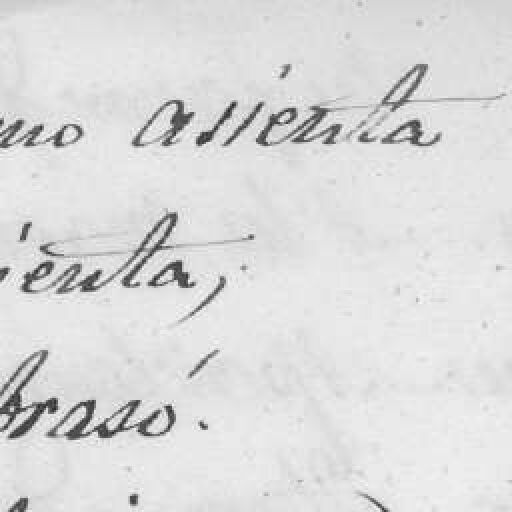 mo asienta
ienta,
brasó.